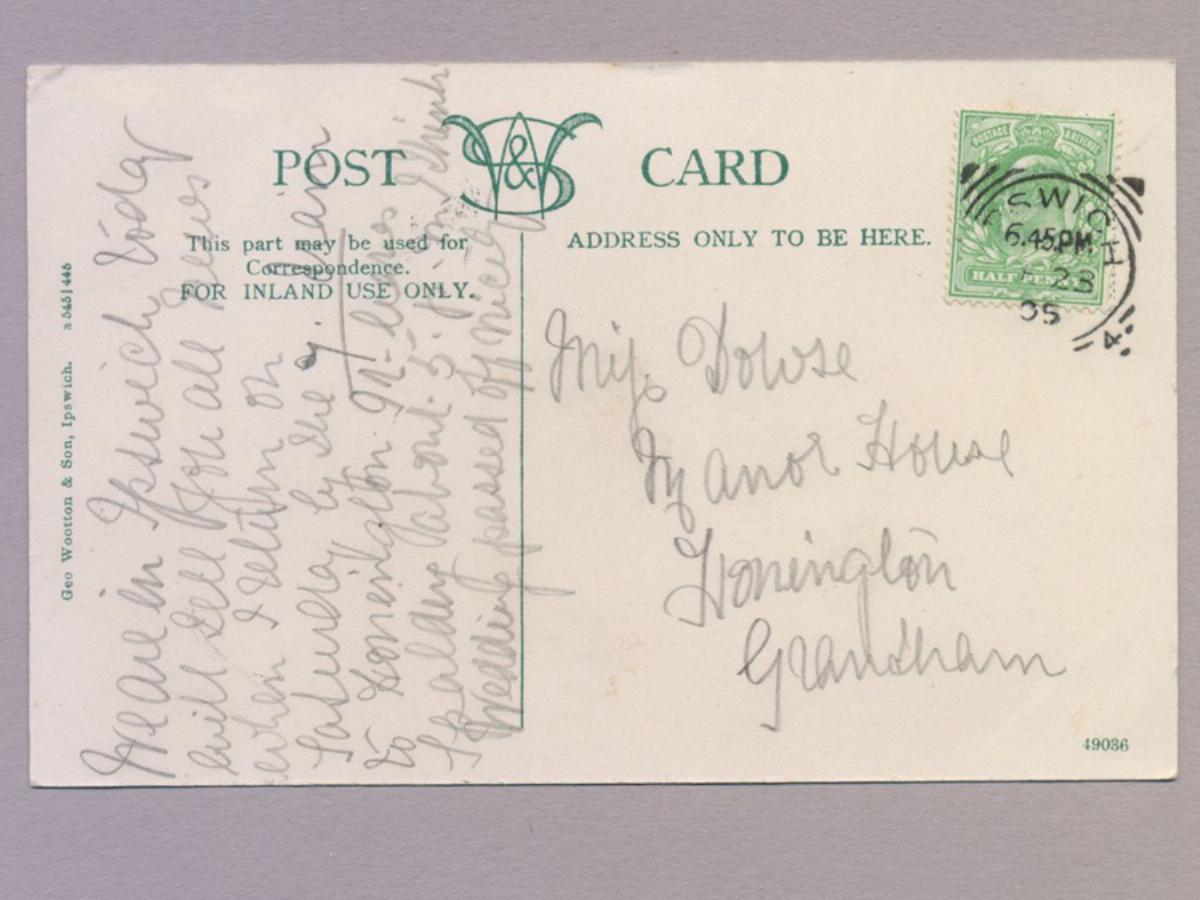 POST CARD
W&S
This part may be used for
Correspondence.
FOR INLAND USE ONLY.
ADDRESS ONLY TO BE HERE.
POSTAGE REVENUE
HALF PENNY
IPSWICH
6.45PM
23
05
4
Geo Wootton & Son, Ipswich. a 545|445
We are in Ipswich today
will tell you all news
when I return on
Saturday by the train
to Honington It leaves
Spalding about 5. p.m I think
Wedding passed off nicely
Miss Dowse
Manor House
Honington
Grantham
49036